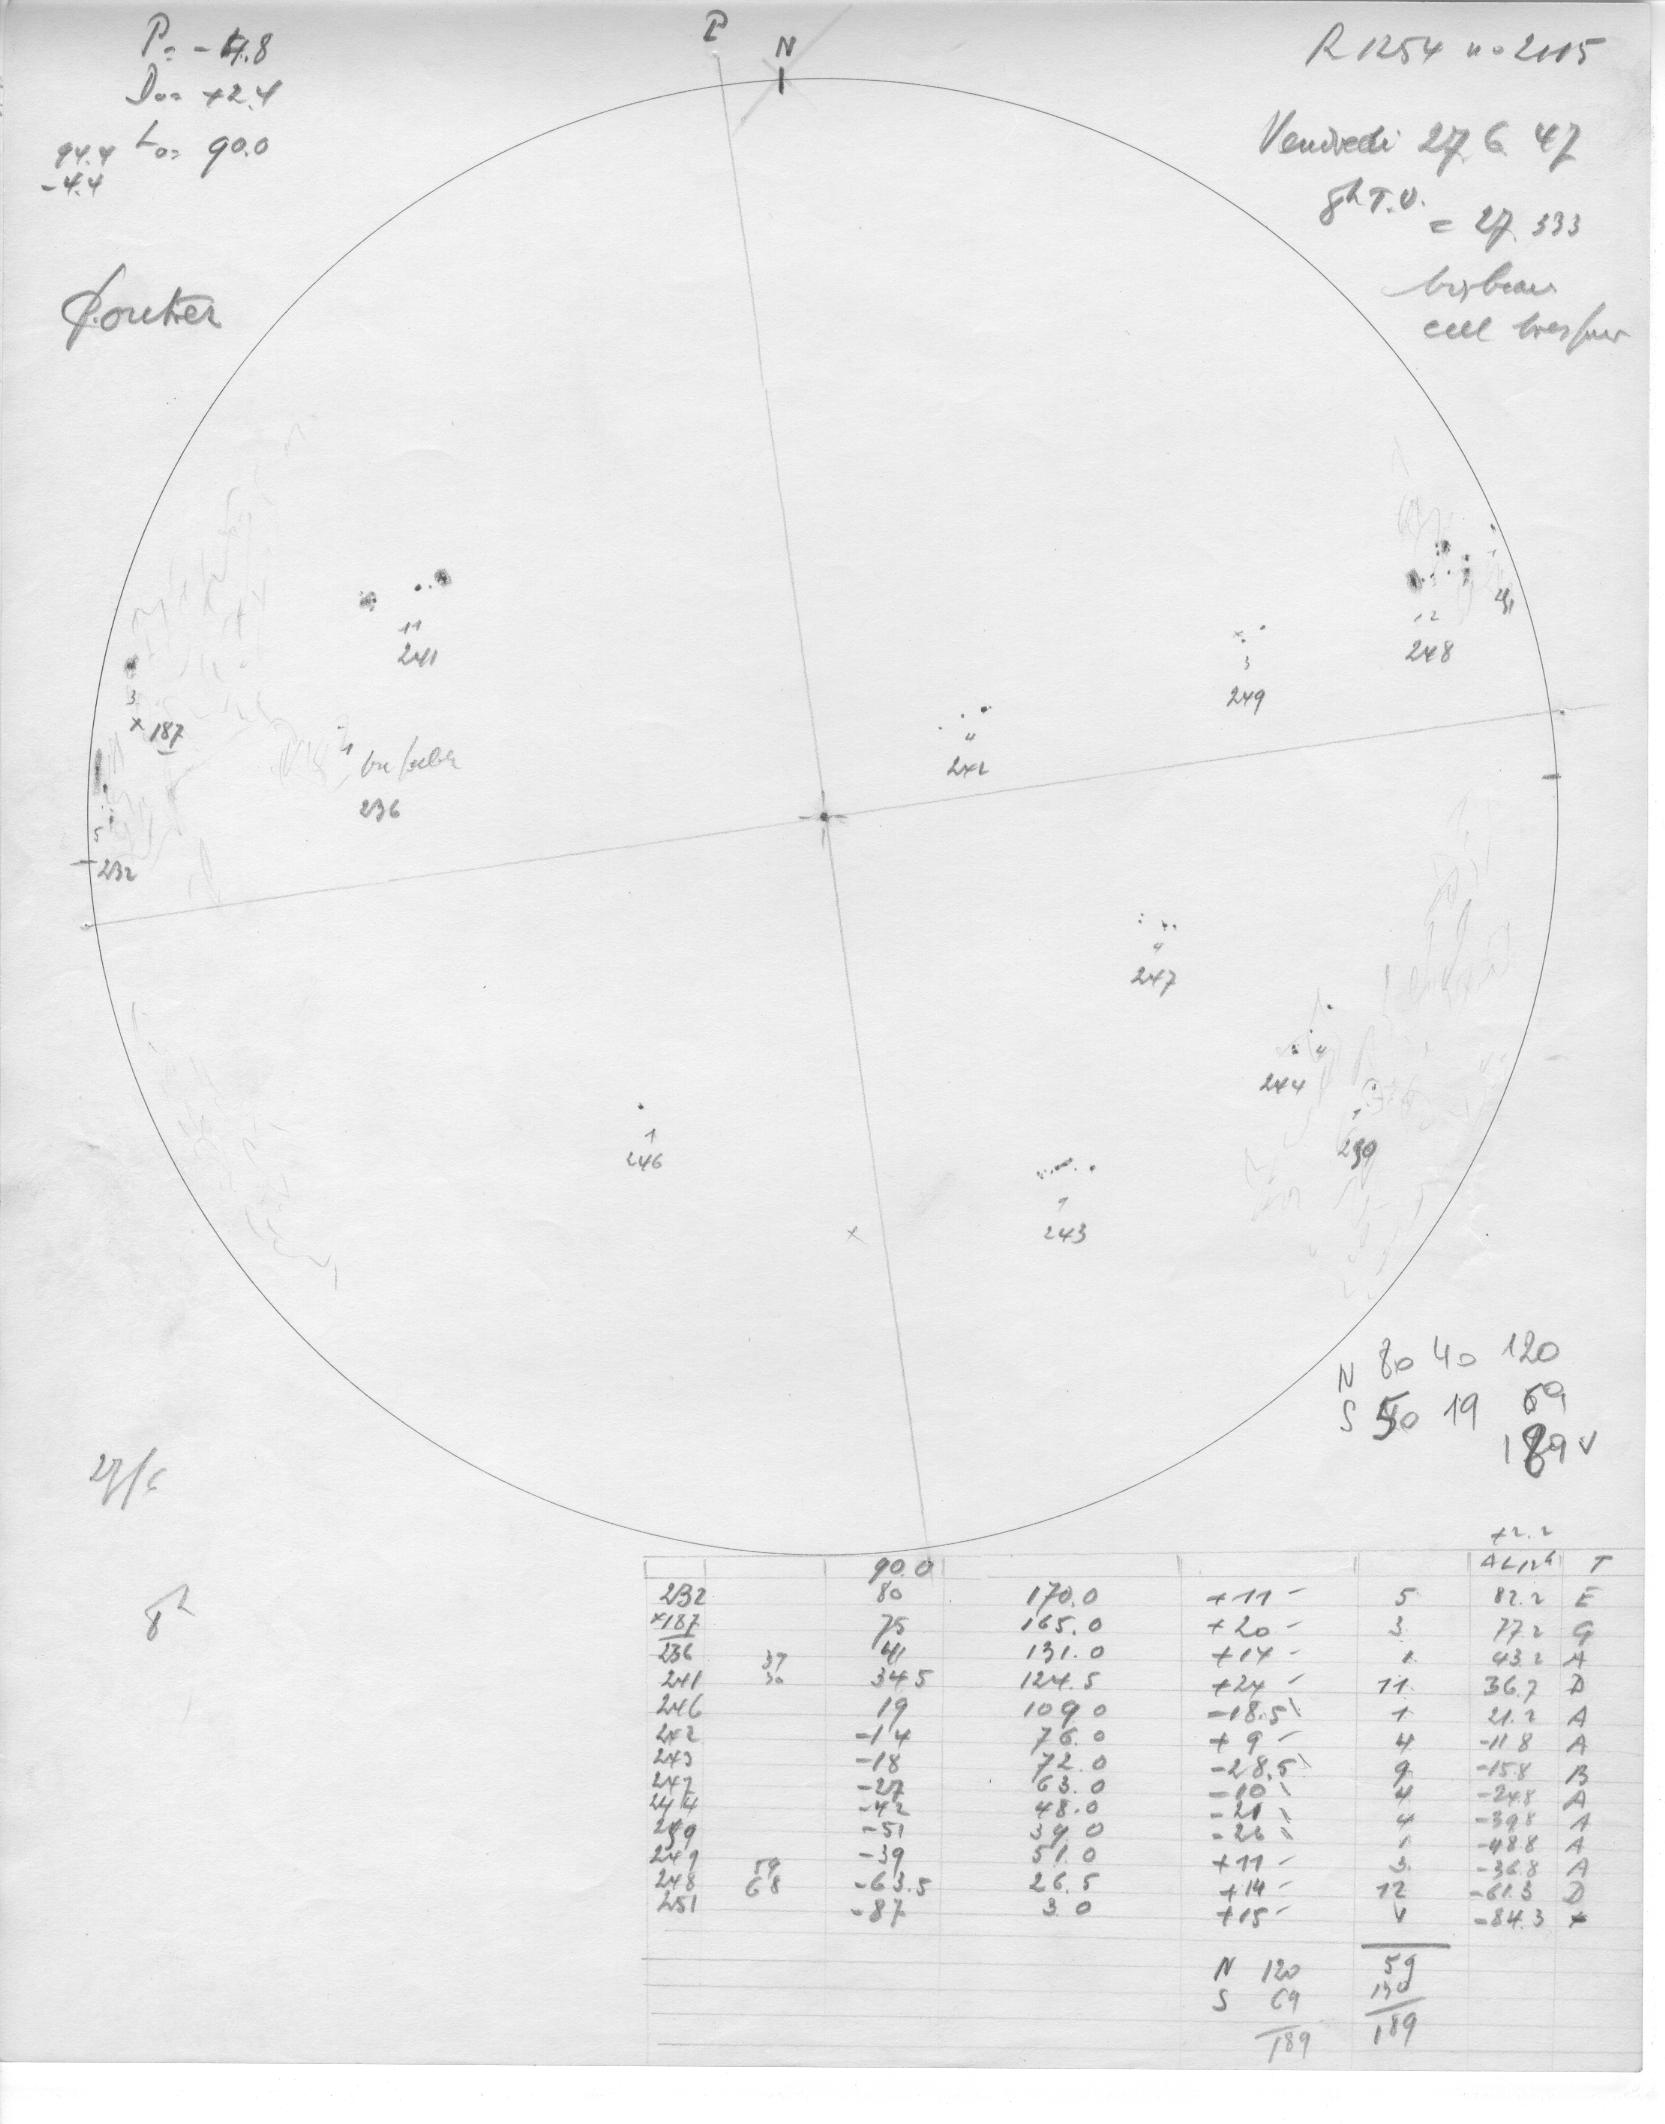 P
N
P= -4.8
D₀= +2.4
L₀= 90.0
94.4
-4.4
R 1254 no 2115
Vendredi 27 6 47
8h T.U.
= 27.333
241
11
3
x 187
236
5
232
4
242
3
249
12
248
4
247
4
244
1
1
246
243
N 80 40 120
S 50 19 69
189 v
27/6
8h
+2.2
90.0 T
232 80 170.0 +11 - 5 82.2 E
x187 75 165.0 +20 - 3 77.2 G
236 41 131.0 +14 - 1 43.2 A
241 37 30 34.5 124.5 +24 - 11 36.7 D
246 19 109.0 -18.5 \ 1 21.2 A
242 -14 76.0 +9 - 4 -11.8 A
243 -18 72.0 -28.5 \ 9 -15.8 B
247 -27 63.0 -10 \ 4 -24.8 A
244 -42 48.0 -21 \ 4 -39.8 A
-51 39.0 -26 \ 1 -48.8 A
249 -39 51.0 +11 - 3 -36.8 A
248 59 68 -63.5 26.5 +14 - 12 -61.3 D
251 -87 3.0 +15 - -84.3
N 120 59
S 69 130
189 189